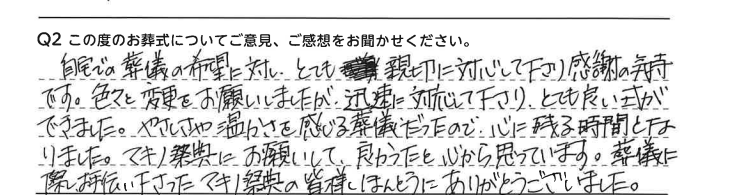 Q2 この度のお葬式についてご意見、ご感想をお聞かせください。
自宅での葬儀の希望に対し、とても親切に対応して下さり感謝の気持
です。色々と変更をお願いしましたが、迅速に対応して下さり、とても良い式が
できました。やさしさや温かさを感じる葬儀だったので、心に残る時間とな
りました。マキノ祭典にお願いして、良かったと心から思っています。葬儀に
際しお手伝い下さったマキノ祭典の皆様、ほんとうにありがとうございました。